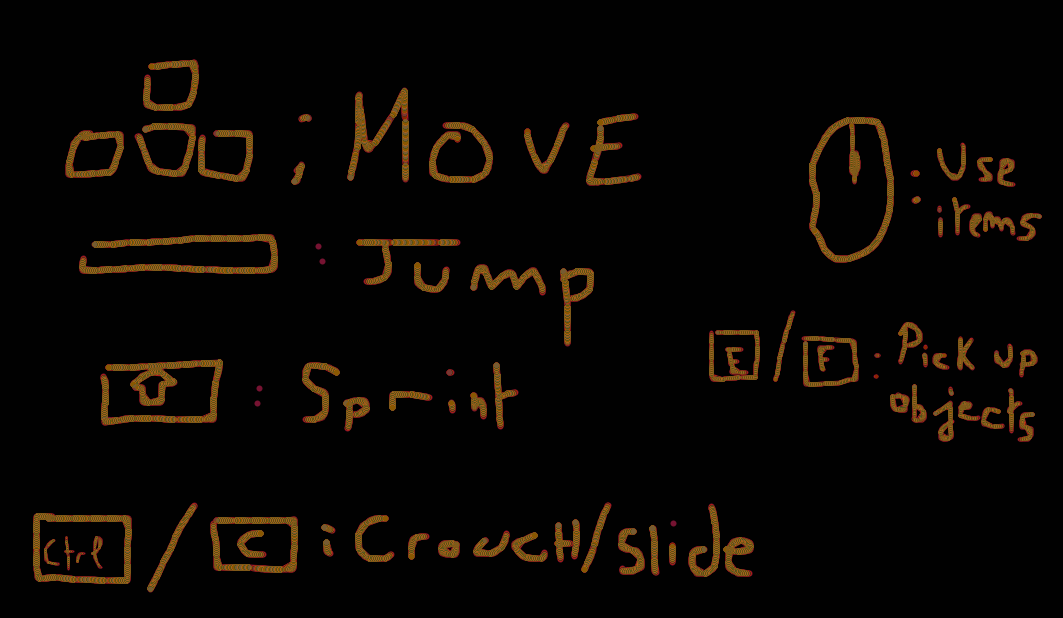 : MOVE
: Jump
: Sprint
Ctrl / C : CroucH/Slide
: Use
items
E / F : Pick up
objects